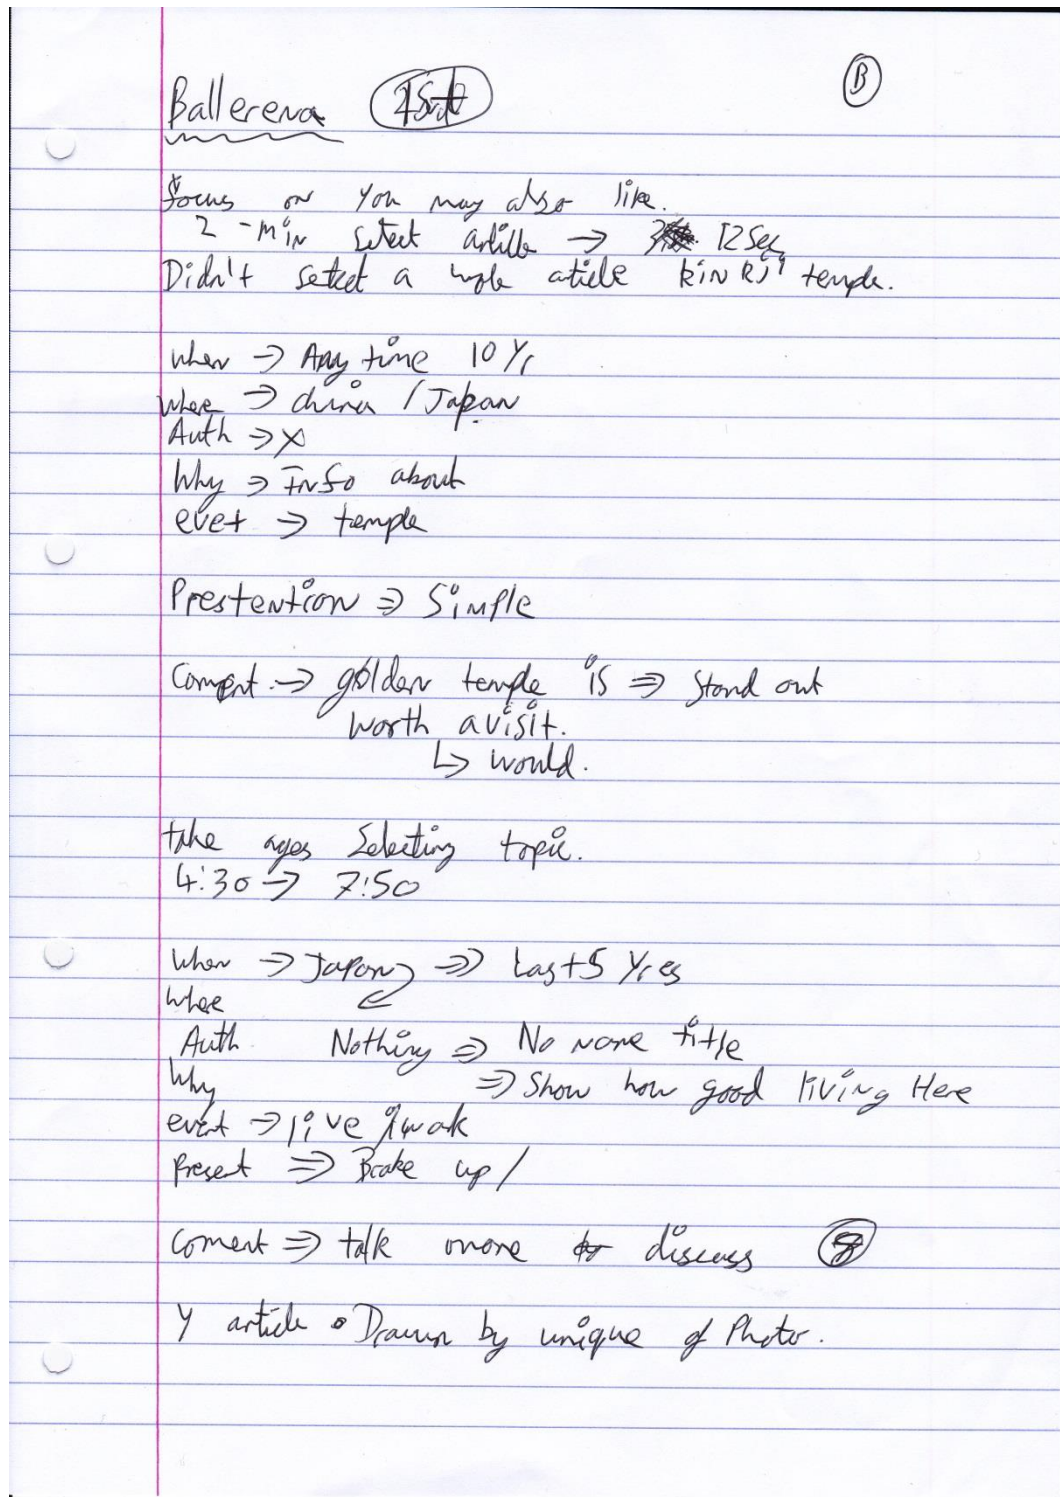 Ballerena B
focus on you may also like.
2 - min select article → 12 Sec
Didn't select a article kinkji temple.
when → Any time 10 Yr
where → china / Japan
Auth → x
Why → Info about
evet → temple
Prestention ⇒ Simple
Coment → golden temple is ⇒ Stand out
worth a visit.
↳ would.
take ages Selecting topic.
4:30 → 7:50
When → Japan ⇒ Last 5 Yres
where
Auth Nothing ⇒ No name title
Why ⇒ Show how good living Here
event → live
Present ⇒ Brake up /
Coment ⇒ talk more discuss
Y article • Drawn by unique of Photo.